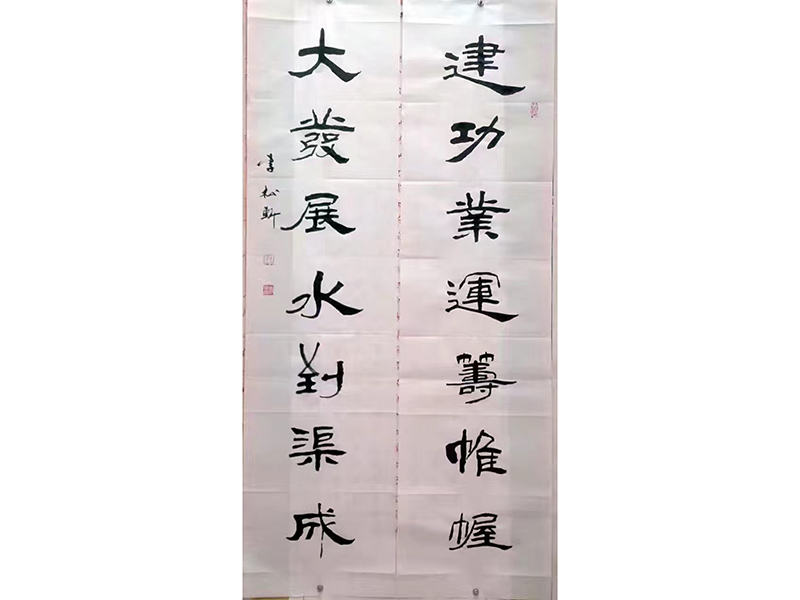 建功業運籌帷幄
大發展水到渠成
李松軒